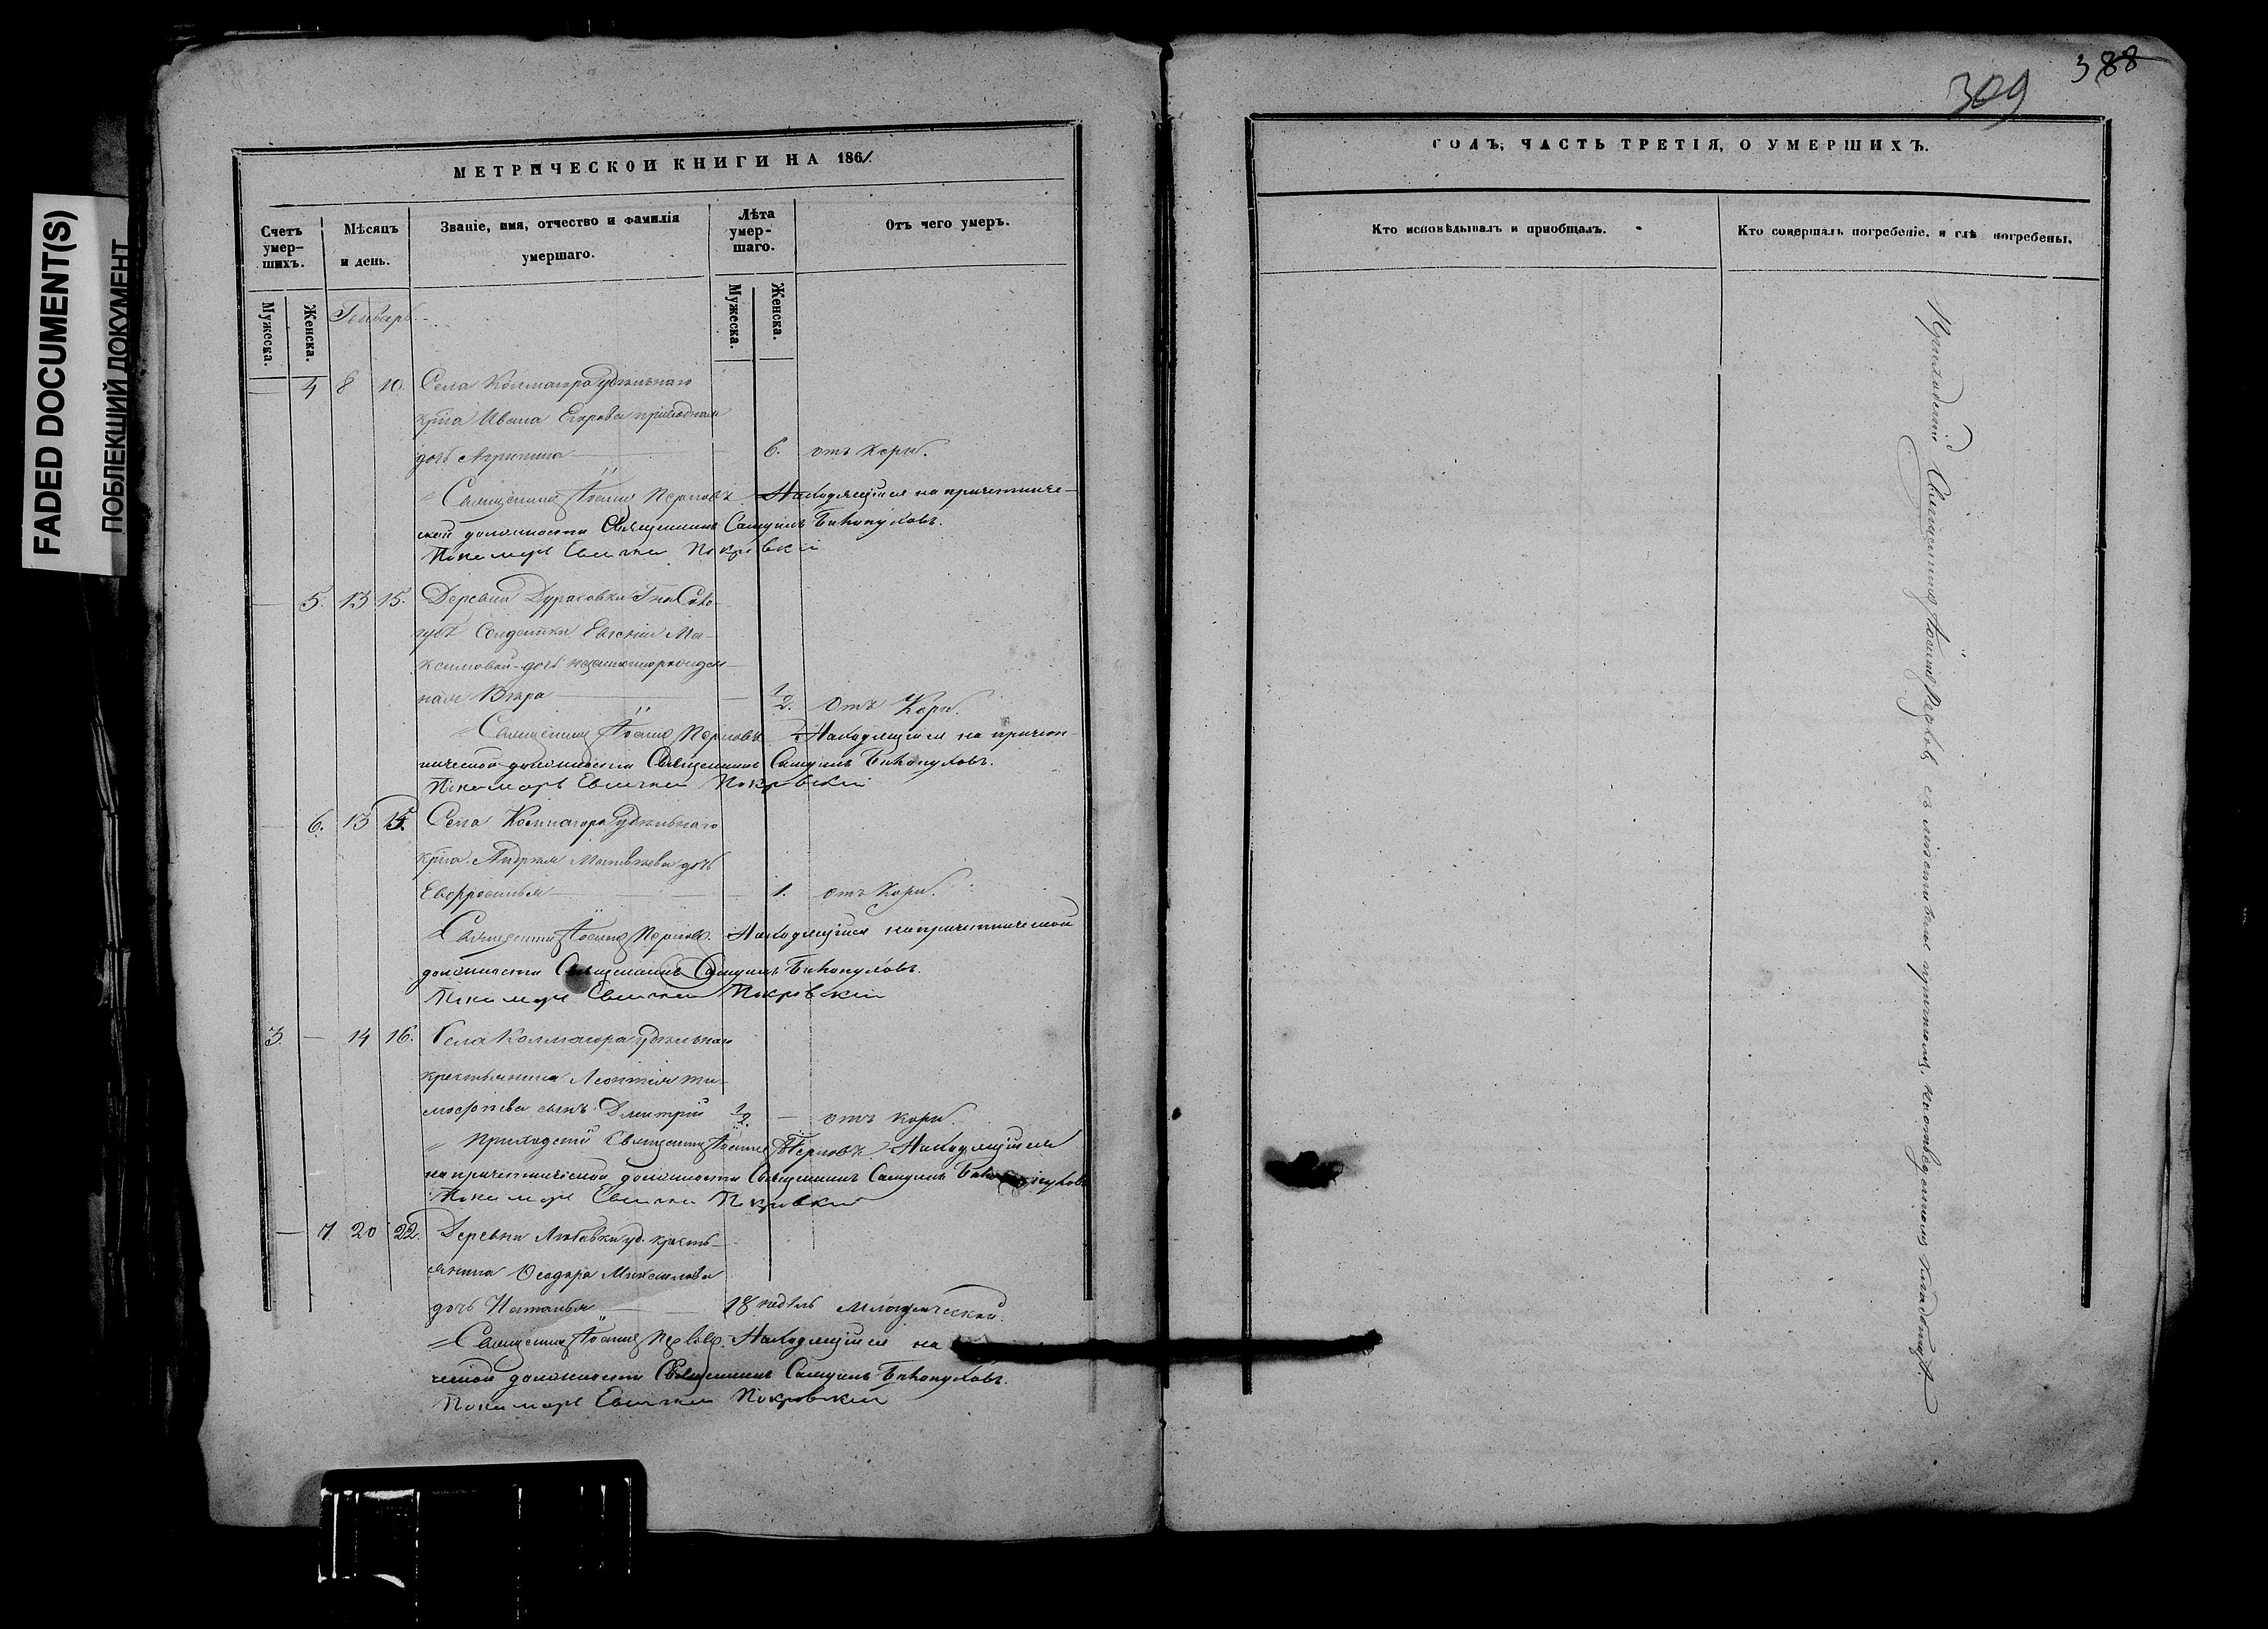 FADED DOCUMENT(S)
ПОБЛЕКШИЙ ДОКУМЕНТ
МЕТРИЧЕСКОЙ КНИГИ НА 1861.
Счетъ умер-шихъ.
Мѣсяцъ и день.
Званіе, имя, отчество и фамилія умершаго.
Лѣта умер-шаго.
Отъ чего умеръ.
Мужеска.
Женска.
Мужеска.
Женска.
Генварь
— 4 8 10. Села Колмаюра Удѣльнаго
крѣна Ивана Егорова
дочь Агрипина — 6. отъ кори.
Священникъ Іоаннъ Перловъ Находящійся на причетниче-
ской должности Священникъ Самуилъ
Пономарь Евгеній Покровскій
— 5. 13 15. Деревни Дураковки
Солдатки Евгеніи Ма-
ксимовой дочь незаконнорожден-
ная Вѣра — 1/2. Отъ Кори.
Священникъ Іоаннъ Перловъ Находящійся на причет-
нической должности Священникъ Самуилъ
Пономарь Евгеній Покровскій
— 6. 13 15. Села Колмаюра Удѣльнаго
крѣна Андрея Матвѣева дочь
Евфросинья — 1. отъ Кори.
Священникъ Іоаннъ Перловъ. Находящійся на причетнической
должности Священникъ Самуилъ
Пономарь Евгеній Покровскій
3. — 14 16. Села Колмаюра удѣльнаго
крестьянина Леонтія Ти-
мофѣева сынъ Дмитрій 1/2. — отъ кори.
Приходскій Священникъ Іоаннъ Перловъ. Находящійся
на причетнической должности Священникъ Самуилъ
Пономарь Евгеній Покровскій
— 7 20 22. Деревни уд. кресть-
янина Ѳеодора Михайлова
дочь Наталья — 18 недѣль Младенческой.
Священникъ Іоаннъ Перловъ. Находящійся на
ческой должности Священникъ Самуилъ
Пономарь Евгеній Покровскій
388
309
ГОДЪ, ЧАСТЬ ТРЕТІЯ, О УМЕРШИХЪ.
Кто исповѣдывалъ и пріобщалъ.
Кто совершалъ погребеніе, и гдѣ погребены.
Приходскій Священникъ Іоаннъ Перловъ съ причтомъ, на отведенномъ кладбищѣ